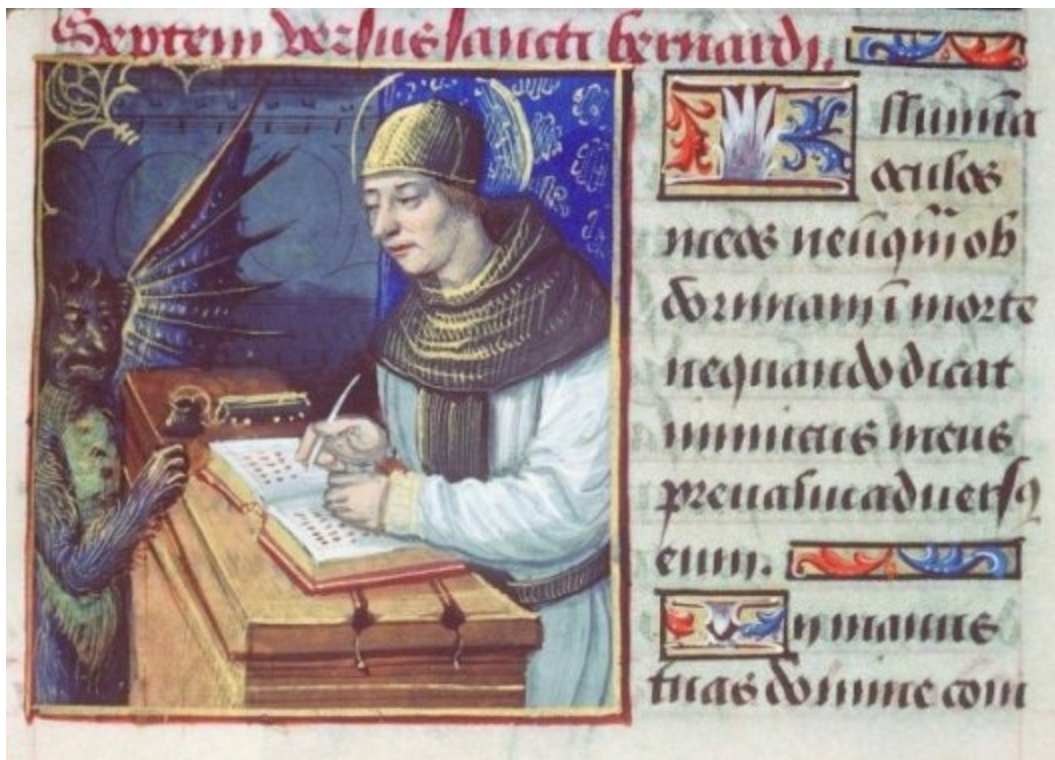 Septem versus sancti bernardi.
Illumīa
oculos
meos neūqm̄ ob
dormiam ī morte
nequando dicat
inimicus meus
preualui aduersꝰ
eum.
In manus
tuas domine com